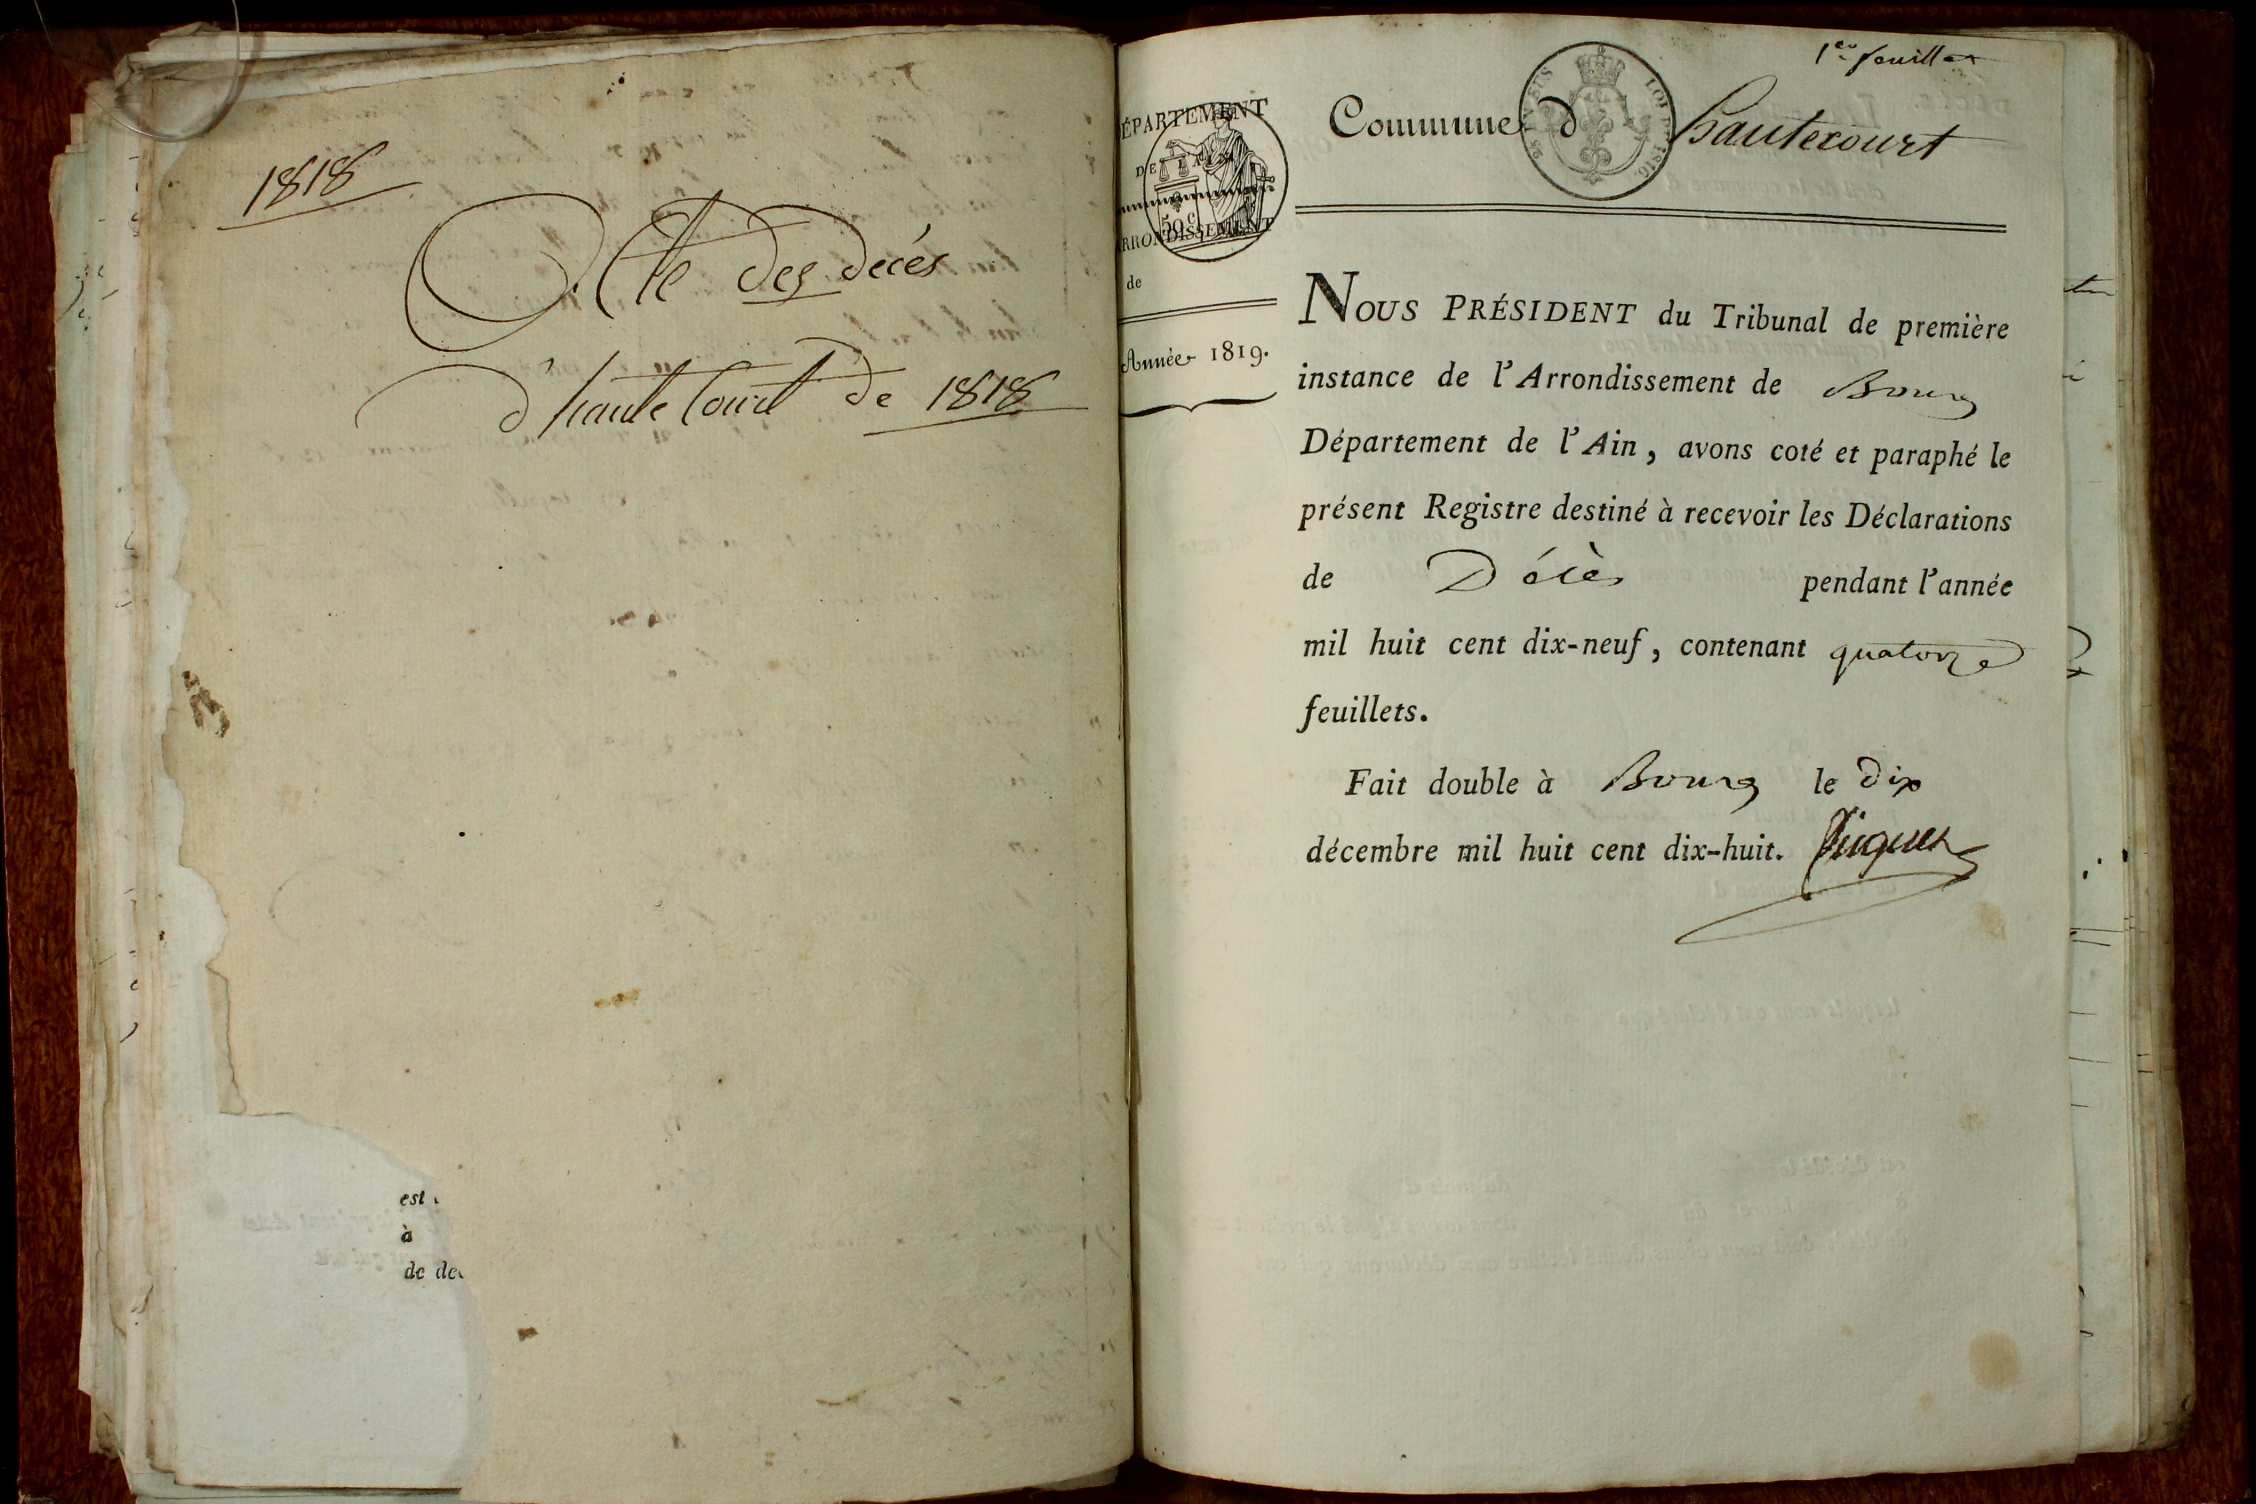 1818
Acte des décés
d'haute Court de 1818
est
à
de de
1er feuillet
Commune d hautecourt
DÉPARTEMENT
DE L'AIN
50 c
ARRONDISSEMENT
de
Année 1819.
NOUS PRÉSIDENT du Tribunal de première
instance de l'Arrondissement de Bourg
Département de l'Ain, avons coté et paraphé le
présent Registre destiné à recevoir les Déclarations
de Décès pendant l'année
mil huit cent dix-neuf, contenant quatorze
feuillets.
Fait double à Bourg le dix
décembre mil huit cent dix-huit.